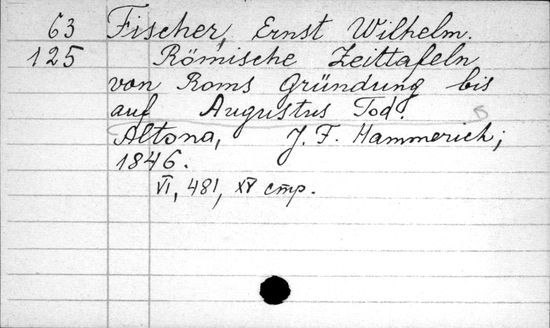 63 Fischer, Ernst Wilhelm.
125 Römische Zeittafeln
von Roms Gründung bis
auf Augustus Tod.
Altona, J. F. Hammerich;
1846.
VI, 481, XV стр.